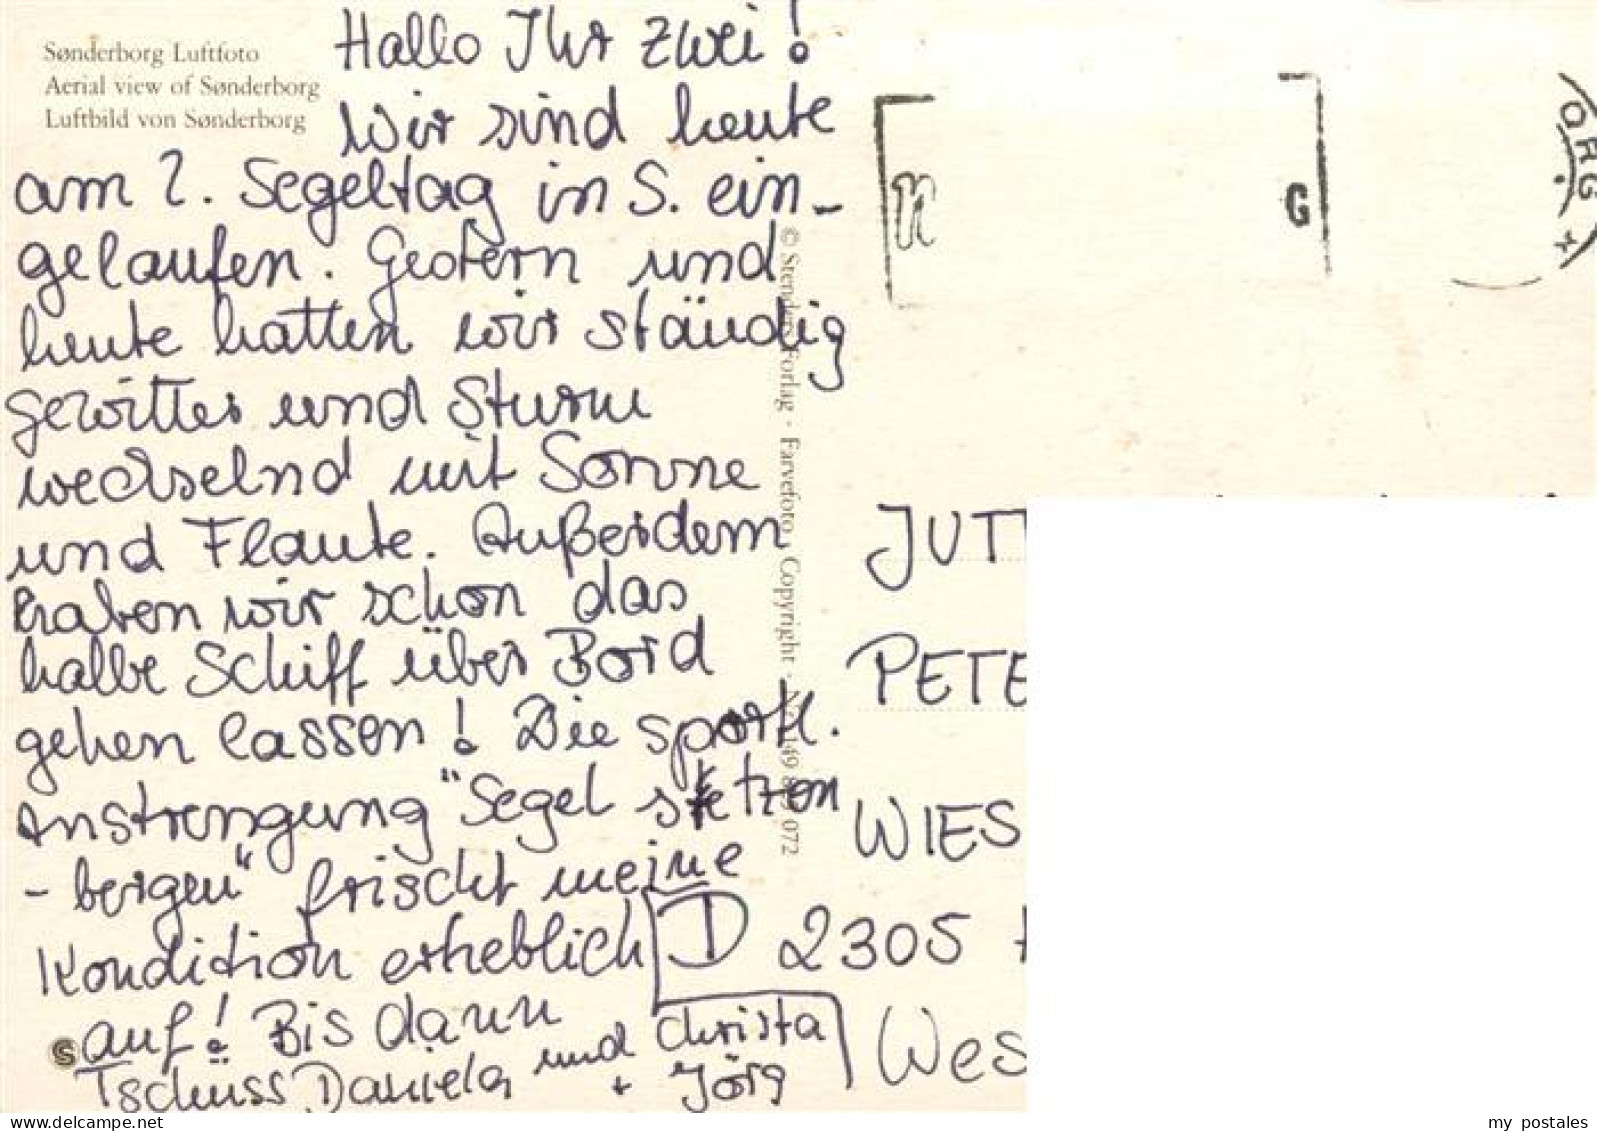 Sønderborg Luftfoto
Aerial view of Sønderborg
Luftbild von Sønderborg
Hallo Ihr zwei!
Wir sind heute
am 2. Segeltag in S. ein-
gelaufen. Gestern und
heute hatten wir ständig
Gewitter und Sturm
wechselnd mit Sonne
und Flaute. Außerdem
haben wir schon das
halbe Schiff über Bord
gehen lassen! Die sportl.
Anstrengung "Segel setzen
- bergen" frischt meine
Kondition erheblich
auf! Bis dann
Tschüss Daniela und Christa
+ Jörg
© Stenders Forlag - Farvefoto. Copyright
072
G
ORG
JUT
PETE
WIES
D 2305
Wes
S
delcampe.net
my_postales